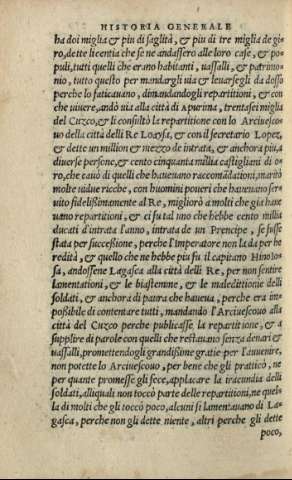 HISTORIA GENERALE
ha doi miglia & piu di saglita, & piu di tre miglia de gi-
ro, dette licentia che se ne andassero alle loro case, & po-
puli, tutti quelli che erano habitanti, uassalli, & patrimo-
nio, tutto questo per mandargli uia & leuarsegli da dosso
perche lo faticauano, dimandandogli repartitioni, & con
che uiuere, andò uia alla città di Apurima, trentasei miglia
del Cuzco, & li consultò la repartitione con lo Arciuesco-
uo della città delli Re Loaysa, & con il secretario Lopez,
& dette un million & mezzo de intrata, & anchora piu, a
diuerse persone, & cento cinquanta milia castigliani di o-
ro, che cauò di quelli che haueuano raccomãdationi, maritò
molte uidue ricche, con huomini poueri che haueuano ser-
uito fidelissimamente al Re, migliorò a molti che gia haue
uano repartitioni, & ci fu tal uno che hebbe cento millia
ducati d'intrata l'anno, intrata de un Prencipe, se fusse
stata per successione, perche l'Imperatore non la da per he
redità, & quello che ne hebbe piu fu il capitano Hinoio-
sa, andossene Lagasca alla città delli Re, per non sentire
lamentationi, & le biastemme, & le maledittione delli
soldati, & anchora di paura che haueua, perche era im-
possibile di contentare tutti, mandando l'Arciuescouo alla
città del Cuzco perche publicasse la repartitione, & a
supplire di parole con quelli che restauano senza denari &
uassalli, promettendogli grandissime gratie per l'auuenire,
non potette lo Arciuescouo, per bene che gli praticò, ne
per quante promesse gli fece, applacare la iracundia delli
soldati, alliquali non toccò parte delle repartitioni, ne quel-
la di molti che gli toccò poco, alcuni si lamentauano di La-
gasca, perche non gli dette niente, altri perche gli dette
poco,